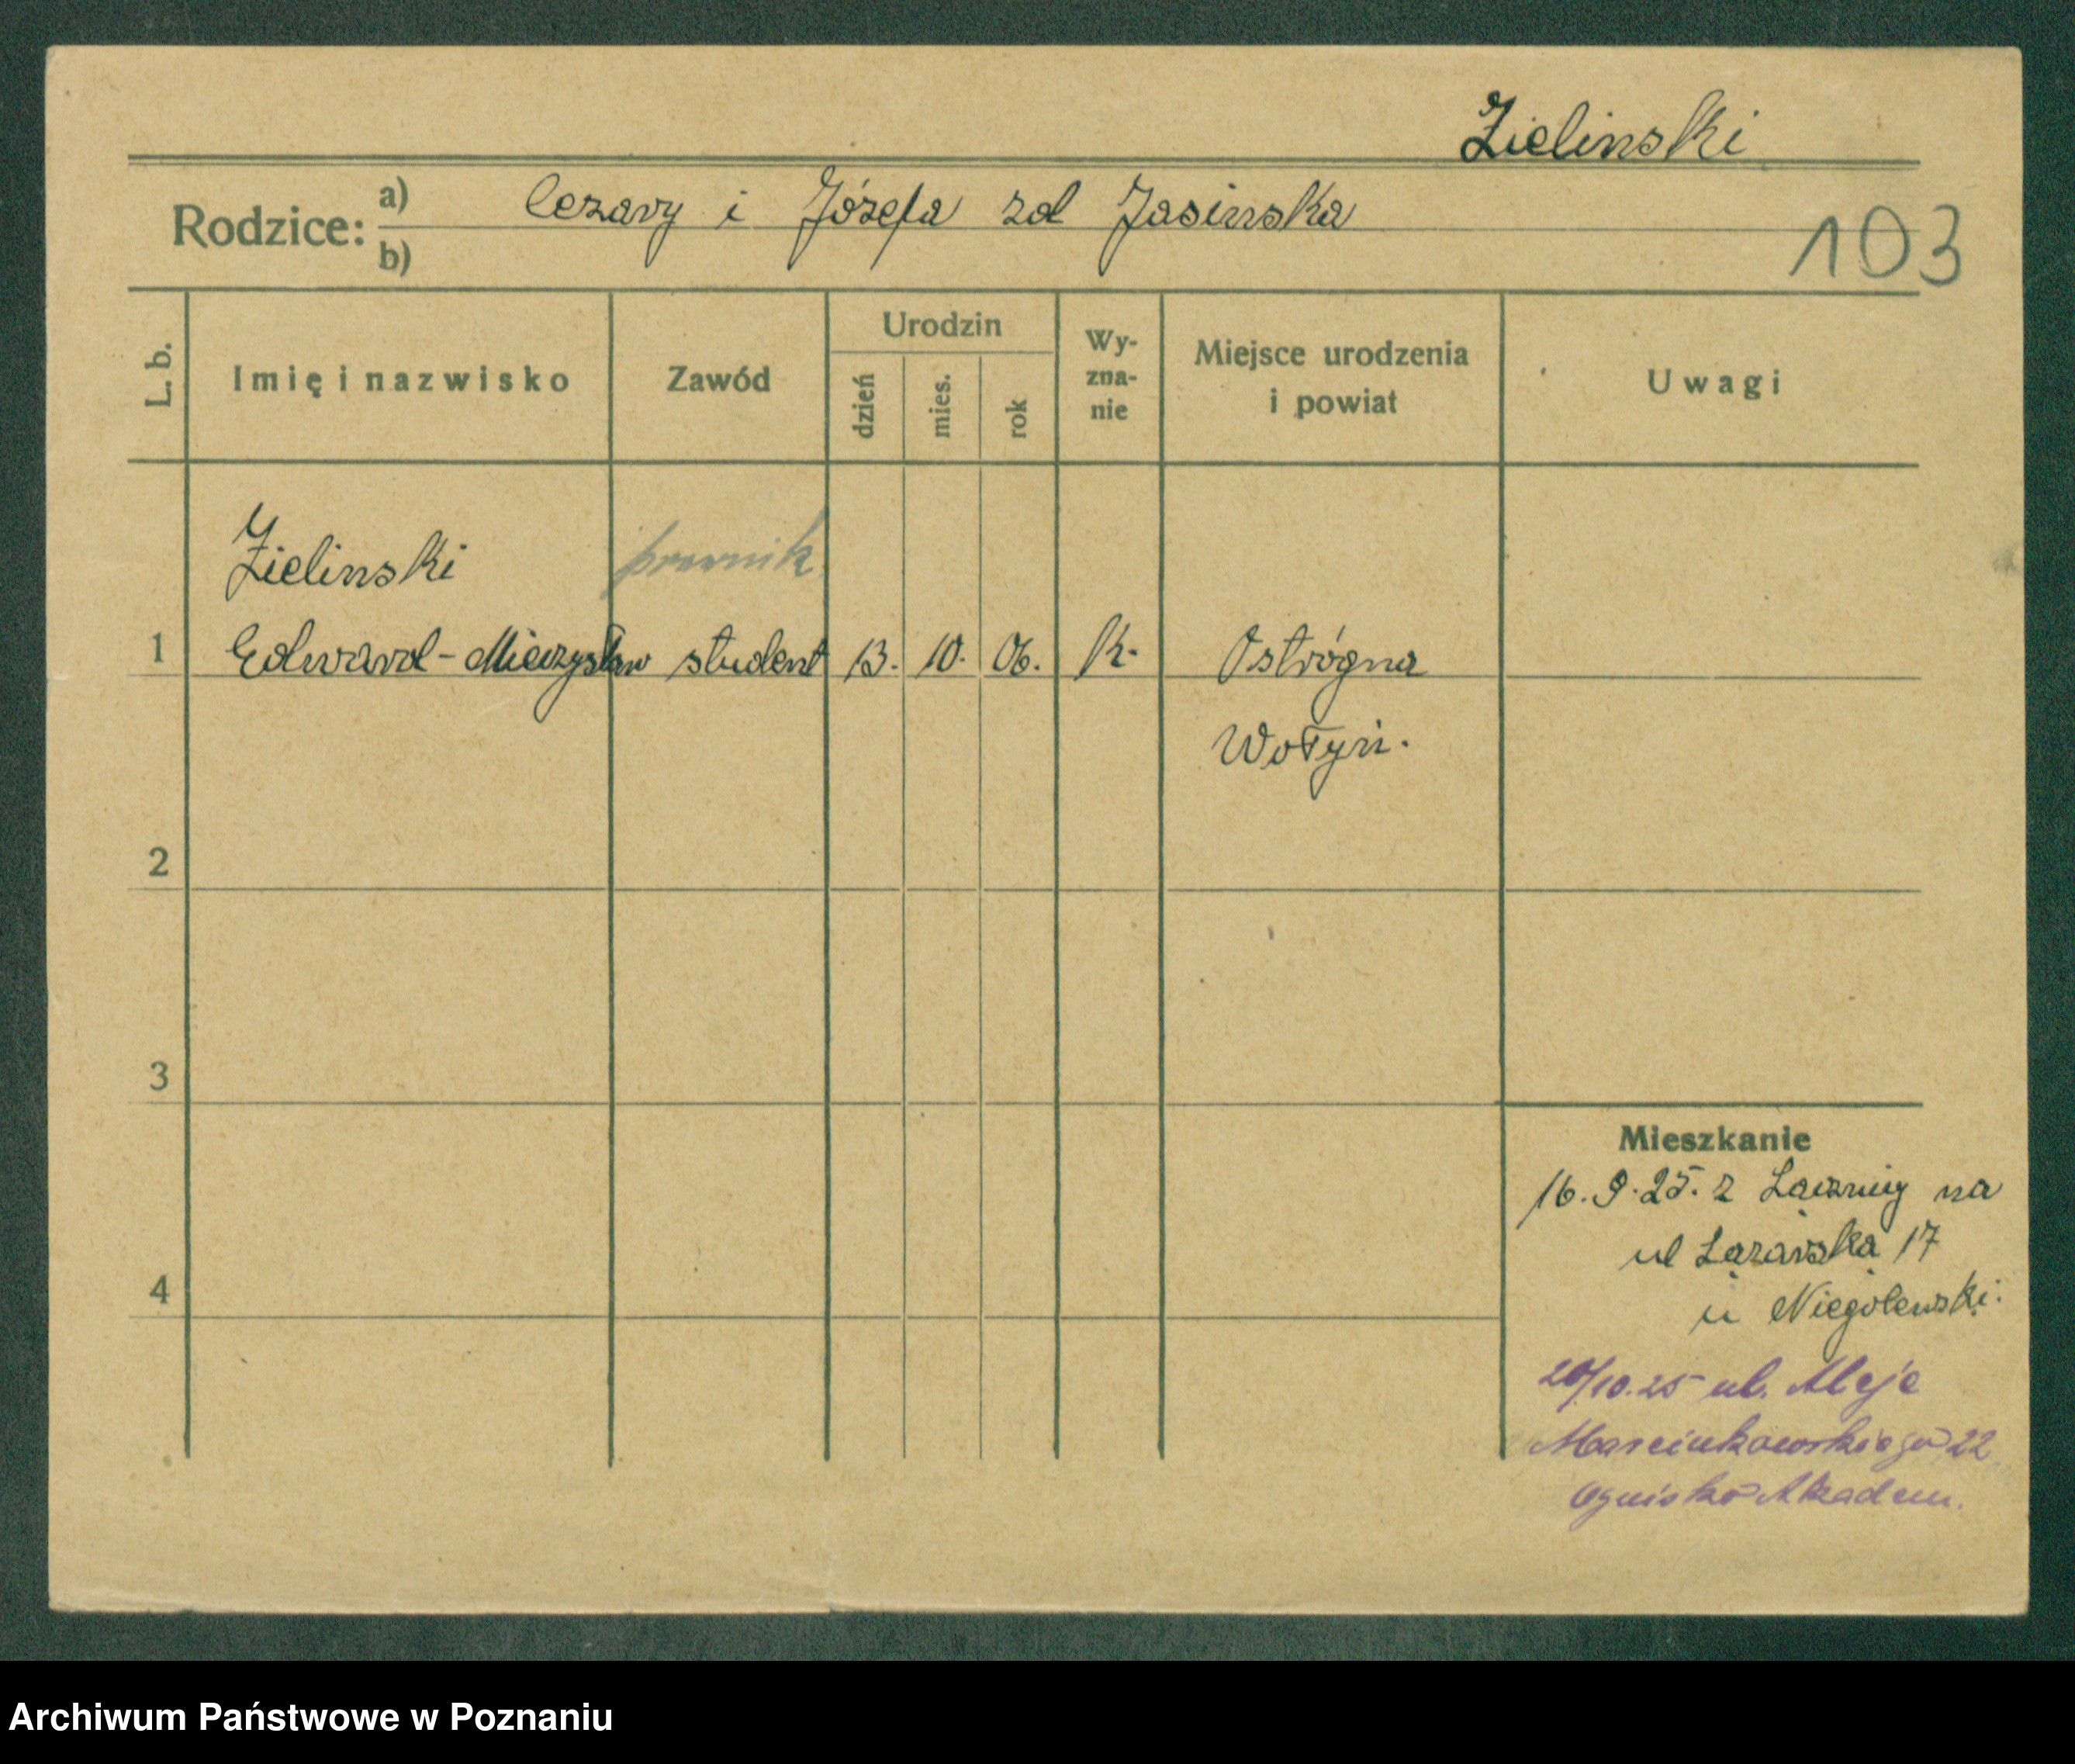 Zielinski
Rodzice: a) Cezary i Józefa zd Jasinska
b)
103
L. b.
Imię i nazwisko
Zawód
Urodzin
dzień
mies.
rok
Wy-
zna-
nie
Miejsce urodzenia
i powiat
Uwagi
Zielinski prawnik
1 Edward-Mieczysław student 13. 10. 06. K. Ostrógna
Wołyń.
2
3
4
Mieszkanie
16.9.25. z na
ul Łazarska 17
u Niegolewski.
20/10.25 ul. Aleje
Marcinkowskiego 22
Ognisko Akadem.
Archiwum Państwowe w Poznaniu